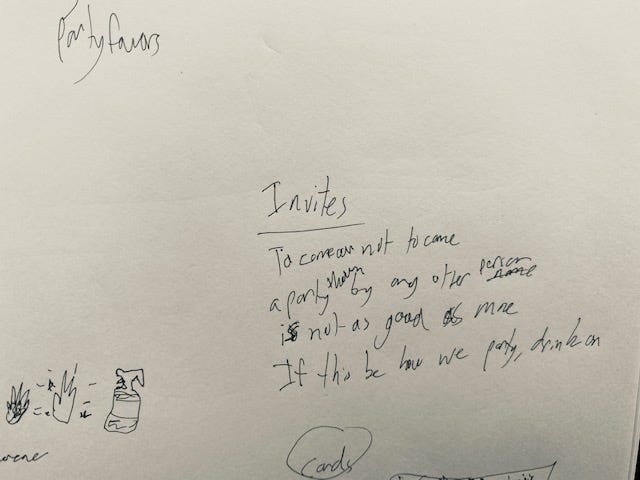 Party favors
Invites
To come or not to come
a party thrown by any other person
is not as good as mine
If this be how we party, drink on
Cards